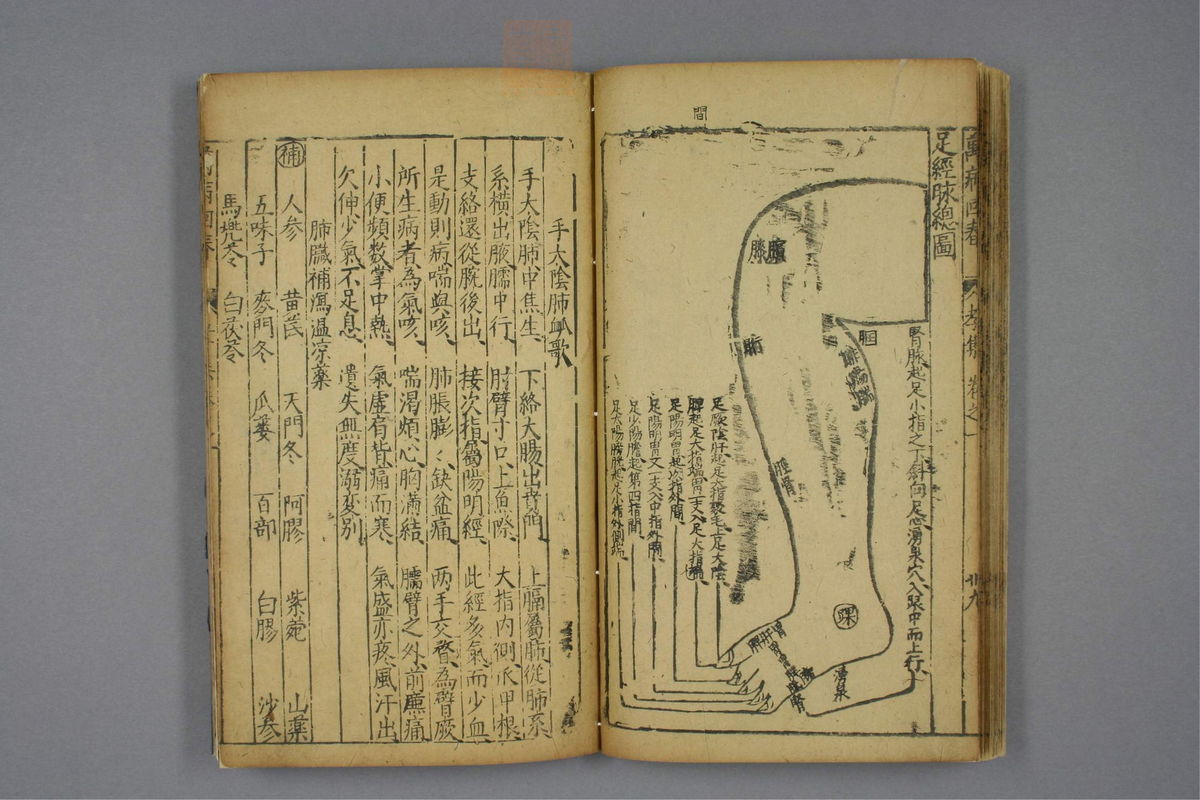 萬病回春
卷之一
足經脉總圖
腎脉起足小指之下斜向足心湧泉穴入聚中而上行
間
臏
膝
䯒
膕
腨腸
脛骨
踝
湧泉
足厥陰肝起足大指叢毛上足大陰
脾起足大指端胃一支入足大指
足陽明胃起次指外間
足陽明胃又一支入中指外間
足少陽膽起第四指間
足太陽膀胱起足小指外側端
手太陰肺脉歌
手太陰肺中焦生 下絡大腸出賁門 上膈屬肺從肺系
系橫出腋臑中行 肘臂寸口上魚際 大指内側爪甲根
支絡還從腕後出 接次指屬陽明經 此經多氣而少血
是動則病喘與咳 肺脹膨〻缺盆痛 兩手交瞀為臂厥
所生病者為氣咳 喘渴煩心胸滿結 臑臂之外前廉痛
小便頻數掌中熱 氣虛肩背痛而寒 氣盛亦疼風汗出
欠伸少氣不足息 遺失無度溺変別
肺臟補瀉温凉藥
補 人參 黃芪 天門冬 阿膠 紫菀 山藥
五味子 麥門冬 瓜蔞 百部 白膠 沙參
馬兜苓 白茯苓